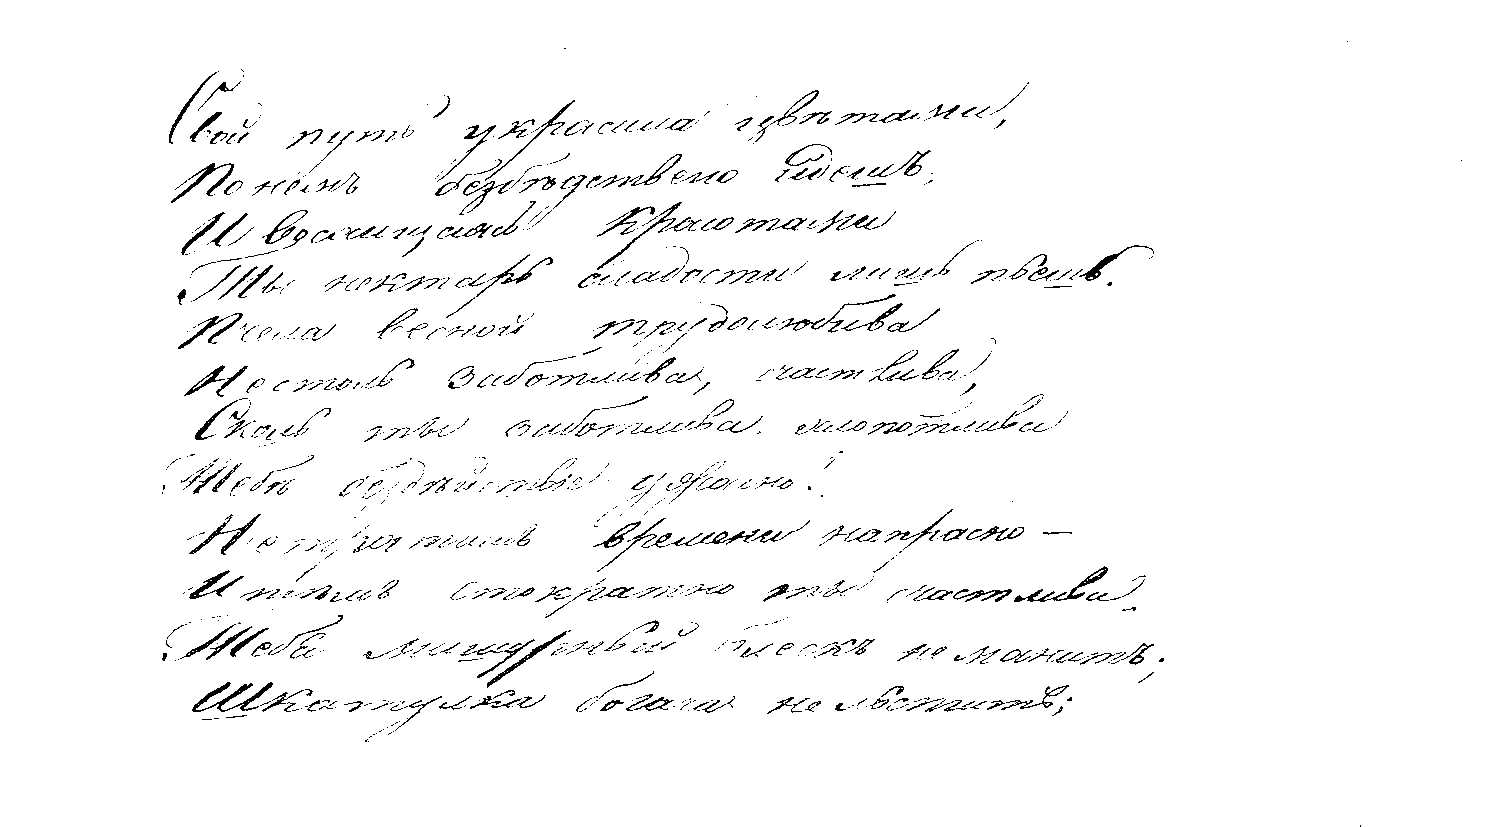 Свой путь украсила цвѣтами,
По немъ безбѣдственно идешъ,
И красотами
Ты нектаръ сладости лишь пьешь.
Пчела весной трудолюбива
Не столь заботлива, счастлива,
Сколь ты заботлива. хлопотлива
Тебѣ бездѣйствіе ужасно!
Не тратишь времени напрасно —
И тѣмъ стократно ты счастлива.
Тебя мишурный блескъ не манитъ;
Шкатулка богача не льститъ;